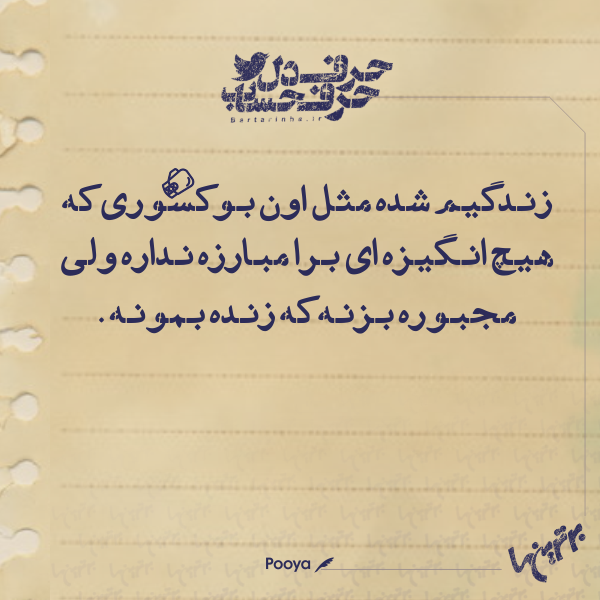 حرف دل
حرف حساب
Bartarinha.ir
زندگیم شده مثل اون بوکسوری که
هیچ انگیزه ای برا مبارزه نداره ولی
مجبوره بزنه که زنده بمونه.
Pooya
برترین‌ها